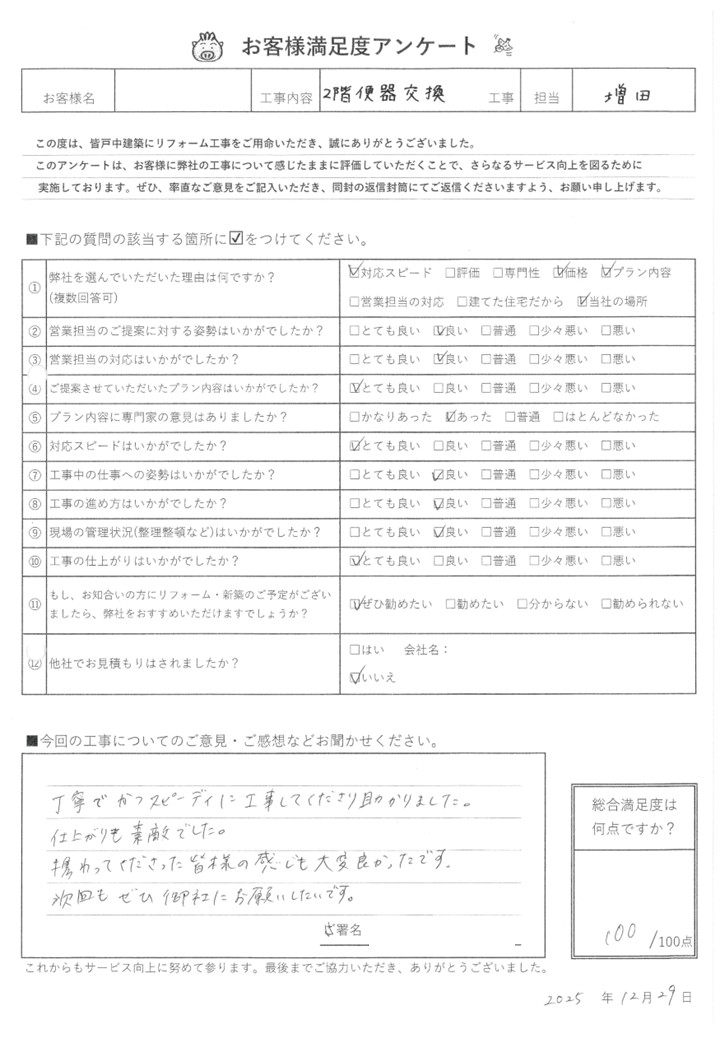 お客様満足度アンケート
お客様名 工事内容 2階便器交換 工事 担当 増田
この度は、皆戸中建築にリフォーム工事をご用命いただき、誠にありがとうございました。
このアンケートは、お客様に弊社の工事について感じたままに評価していただくことで、さらなるサービス向上を図るために
実施しております。ぜひ、率直なご意見をご記入いただき、同封の返信封筒にてご返信くださいますよう、お願い申し上げます。
■下記の質問の該当する箇所に☑をつけてください。
① 弊社を選んでいただいた理由は何ですか？
(複数回答可)
☑対応スピード □評価 □専門性 ☑価格 ☑プラン内容
□営業担当の対応 □建てた住宅だから ☑当社の場所
② 営業担当のご提案に対する姿勢はいかがでしたか？ □とても良い ☑良い □普通 □少々悪い □悪い
③ 営業担当の対応はいかがでしたか？ □とても良い ☑良い □普通 □少々悪い □悪い
④ ご提案させていただいたプラン内容はいかがでしたか？ ☑とても良い □良い □普通 □少々悪い □悪い
⑤ プラン内容に専門家の意見はありましたか？ □かなりあった ☑あった □普通 □ほとんどなかった
⑥ 対応スピードはいかがでしたか？ ☑とても良い □良い □普通 □少々悪い □悪い
⑦ 工事中の仕事への姿勢はいかがでしたか？ □とても良い ☑良い □普通 □少々悪い □悪い
⑧ 工事の進め方はいかがでしたか？ □とても良い ☑良い □普通 □少々悪い □悪い
⑨ 現場の管理状況(整理整頓など)はいかがでしたか？ □とても良い ☑良い □普通 □少々悪い □悪い
⑩ 工事の仕上がりはいかがでしたか？ ☑とても良い □良い □普通 □少々悪い □悪い
⑪ もし、お知合いの方にリフォーム・新築のご予定がござい
ましたら、弊社をおすすめいただけますでしょうか？
☑ぜひ勧めたい □勧めたい □分からない □勧められない
⑫ 他社でお見積もりはされましたか？
□はい 会社名：
☑いいえ
■今回の工事についてのご意見・ご感想などお聞かせください。
丁寧でかつスピーディに工事してくださり助かりました。
仕上がりも素敵でした。
携わってくださった皆様の感じも大変良かったです。
次回もぜひ御社にお願いしたいです。
署名
総合満足度は
何点ですか？
100/100点
これからもサービス向上に努めて参ります。最後までご協力いただき、ありがとうございました。
2025年12月29日